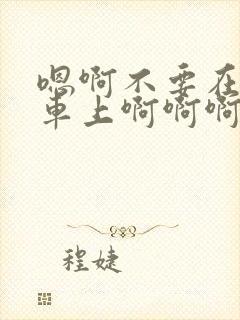 嗯啊不要在
車上啊啊啊
程婕